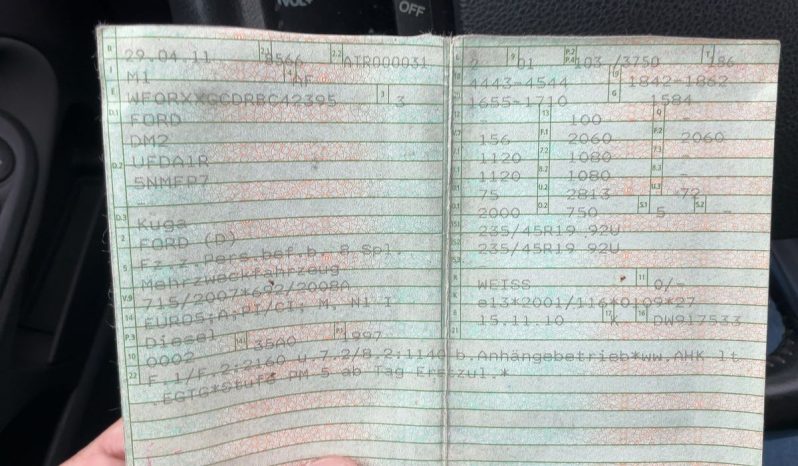 OFF
B 29.04.11 2.1 8566 2.2 AIR000031
J M1 4 AF
E WF0RXXGCDRBC42395 3 3
D.1 FORD
DM2
D.2 UFDA1R
5NMFP7
D.3 Kuga
2 FORD (D)
5 Fz.z.Pers.bef.b. 8 Spl.
Mehrzweckfahrzeug
V.9 715/2007*692/2008A
14 EURO5;A;PI/CI, M, N1 I
P.3 Diesel 35A0 P.1 1997
10 0002
22 F.1/F.2:2160 u.7.2/8.2:1140 b.Anhängebetrieb*ww.AHK lt
.EGTG*Stufe PM 5 ab Tag Erstzul.*
L 2 9 01 P.2 P.4 103 /3750 T 186
18 4443-4544 19 1842-1862
20 1655-1710 G 1584
12 - 13 100 Q -
V.7 156 F.1 2060 F.2 2060
7.1 1120 7.2 1080 7.3 -
8.1 1120 8.2 1080 8.3 -
U.1 75 U.2 2813 U.3 72
O.1 2000 O.2 750 S.1 5 S.2 -
15.1 235/45R19 92U
15.2 235/45R19 92U
R WEISS 11 0/-
K e13*2001/116*0109*27
6 15.11.10 17 K 16 DW917533
21